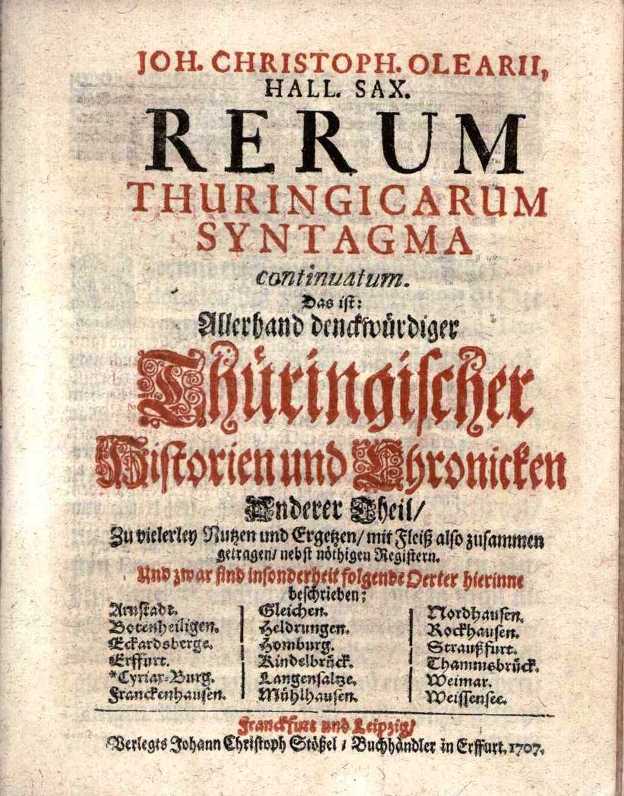 JOH. CHRISTOPH. OLEARII,
HALL. SAX.
RERUM
THURINGICARUM
SYNTAGMA
continuatum.
Das ist:
Allerhand denckwürdiger
Thüringiſcher
Hiſtorien und Chronicken
Anderer Theil/
Zu vielerley Nutzen und Ergetzen/ mit Fleiß alſo zuſammen
getragen/ nebſt nöthigen Regiſtern.
Und zwar ſind inſonderheit folgende Oerter hierinne
beſchrieben;
Arnſtadt.
Botenheiligen.
Eckardsberge.
Erffurt.
*Cyriax-Burg.
Franckenhauſen.
Gleichen.
Heldrungen.
Homburg.
Kindelbrück.
Langenſaltze.
Mühlhauſen.
Nordhauſen.
Rockhauſen.
Straußfurt.
Thammsbrück.
Weimar.
Weiſſenſee.
Franckfurt und Leipzig/
Verlegts Johann Chriſtoph Stößel / Buchhändler in Erffurt, 1707.